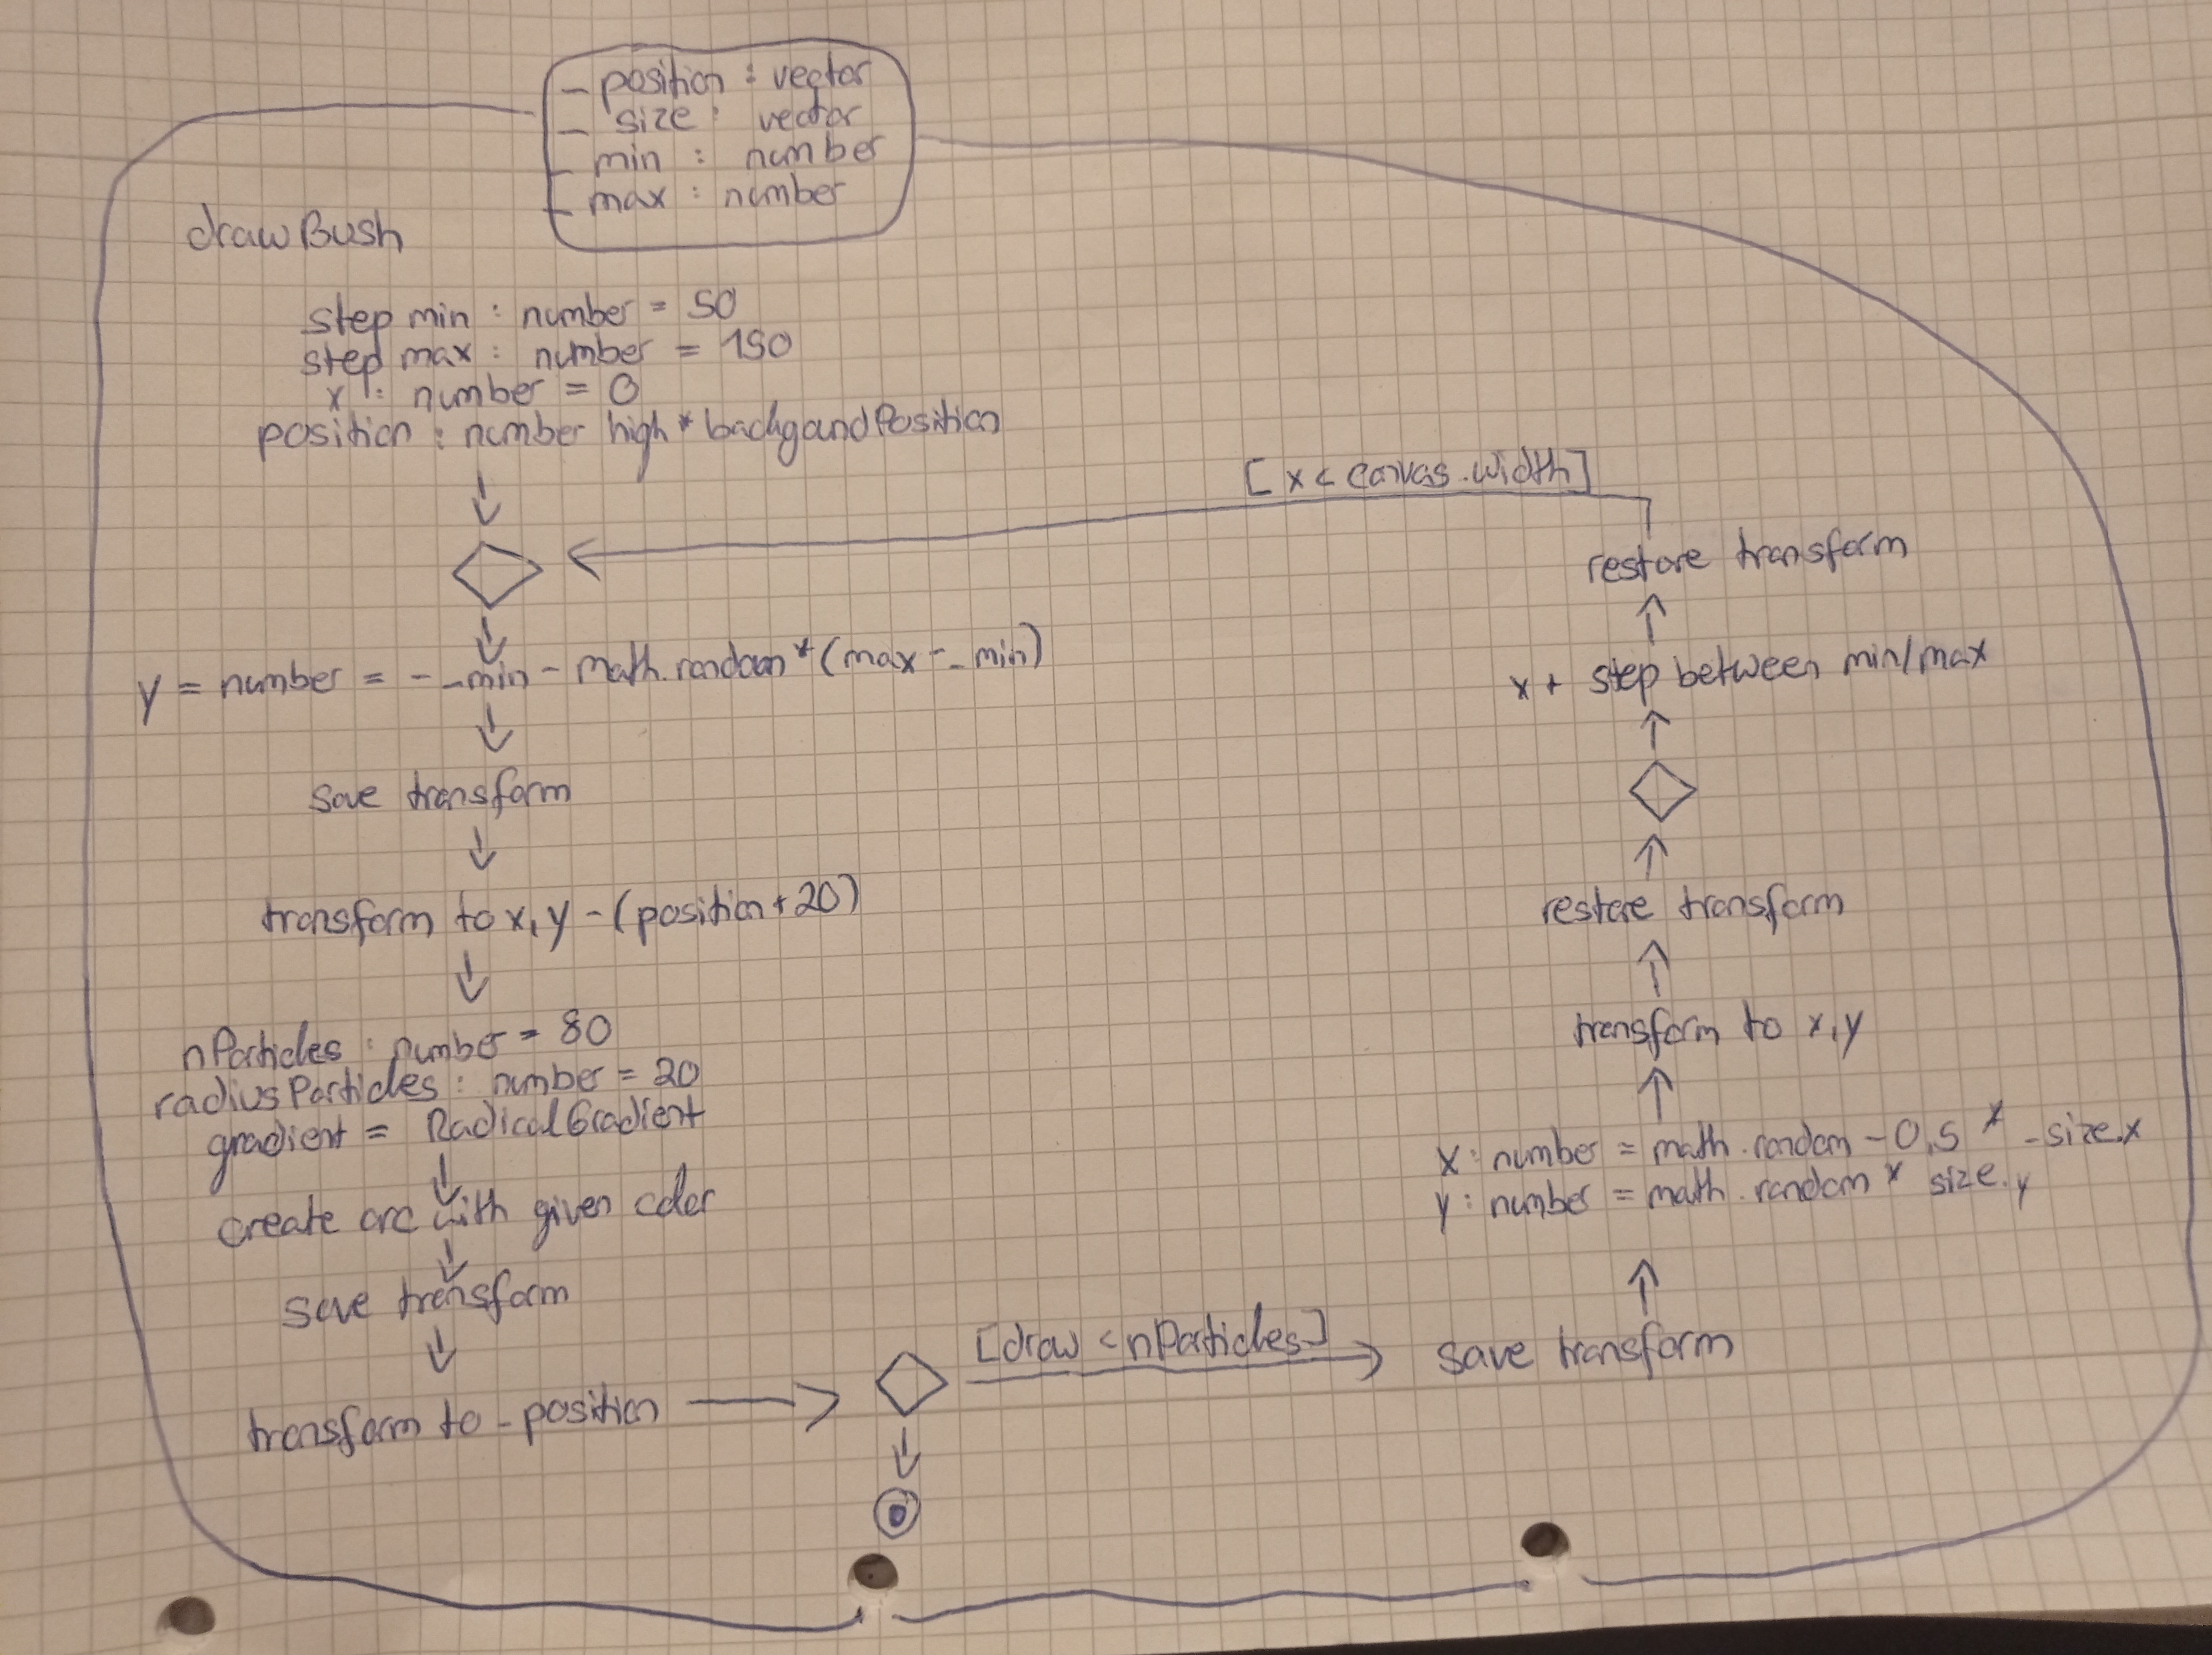 - position : vector
- size : vector
- min : number
- max : number
drawBush
step min : number = 50
step max : number = 150
x : number = 0
position : number high * backgoundPosition
[x < canvas.width]
y = number = - _min - math.random * (max - _min)
save transform
transform to x, y - (position + 20)
nParticles : number = 80
radiusParticles : number = 20
gradient = RadicalGradient
create arc with given color
save transform
transform to _position
[draw < nParticles]
save transform
x : number = math.random - 0,5 * _size.x
y : number = math.random * size.y
transform to x, y
restore transform
x + step between min/max
restore transform